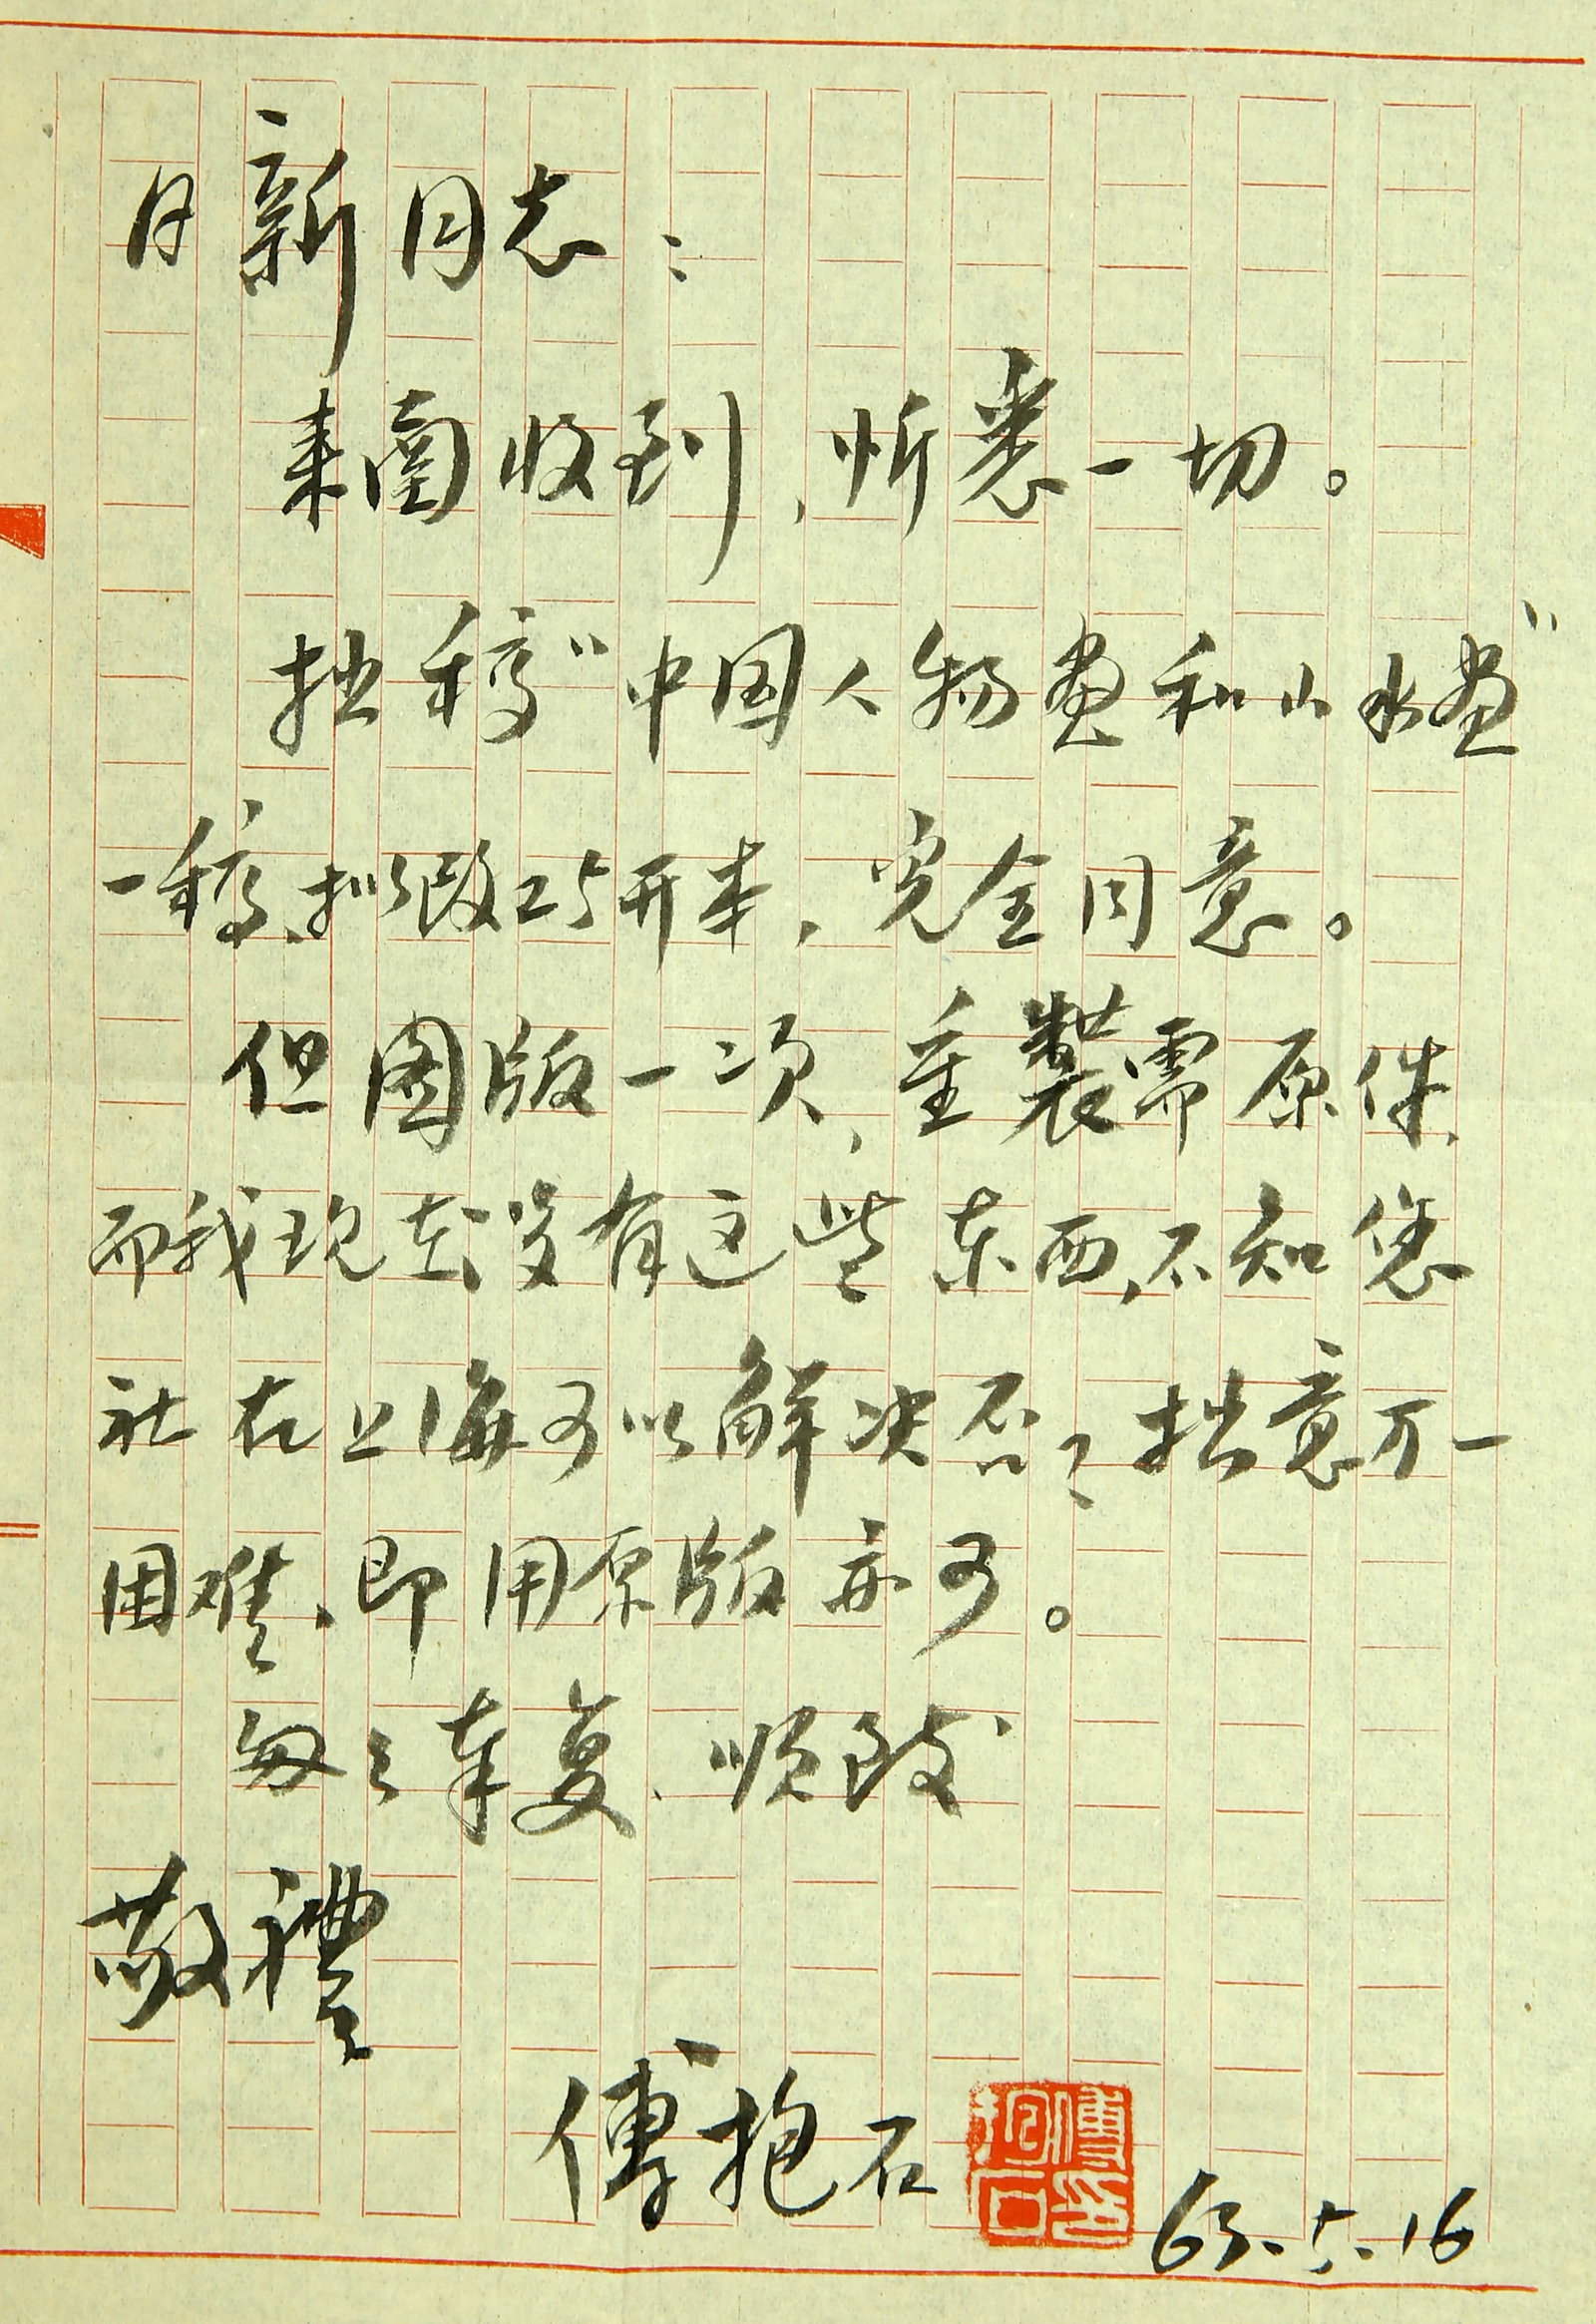 日新同志：
来函收到，忻悉一切。
拙稿"中国人物画和山水画"
一稿，拟改25开本，完全同意。
但图版一次，重製需原件，
而我现在没有这些东西，不知您
社在上海可以解决否？拙意万一
困难，即用原版亦可。
匆々奉复，顺致
敬禮
傅抱石
傅抱石印
63.5.16